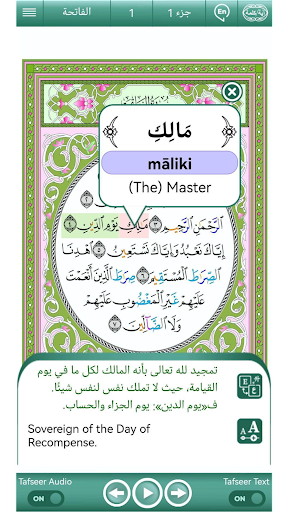 الفاتحة
جزء 1
En
مَالِكِ
māliki
(The) Master
ٱلرَّحْمَٰنِ ٱلرَّحِيمِ ٣ مَٰلِكِ يَوْمِ ٱلدِّينِ ٤
إِيَّاكَ نَعْبُدُ وَإِيَّاكَ نَسْتَعِينُ ٥ ٱهْدِنَا
ٱلصِّرَٰطَ ٱلْمُسْتَقِيمَ ٦ صِرَٰطَ ٱلَّذِينَ أَنْعَمْتَ
عَلَيْهِمْ غَيْرِ ٱلْمَغْضُوبِ عَلَيْهِمْ
وَلَا ٱلضَّآلِّينَ ٧
تمجيد لله تعالى بأنه المالك لكل ما في يوم
القيامة، حيث لا تملك نفس لنفس شيئًا.
ف«يوم الدين»: يوم الجزاء والحساب.
Sovereign of the Day of
Recompense.
Tafseer Audio
Tafseer Text
ON
ON